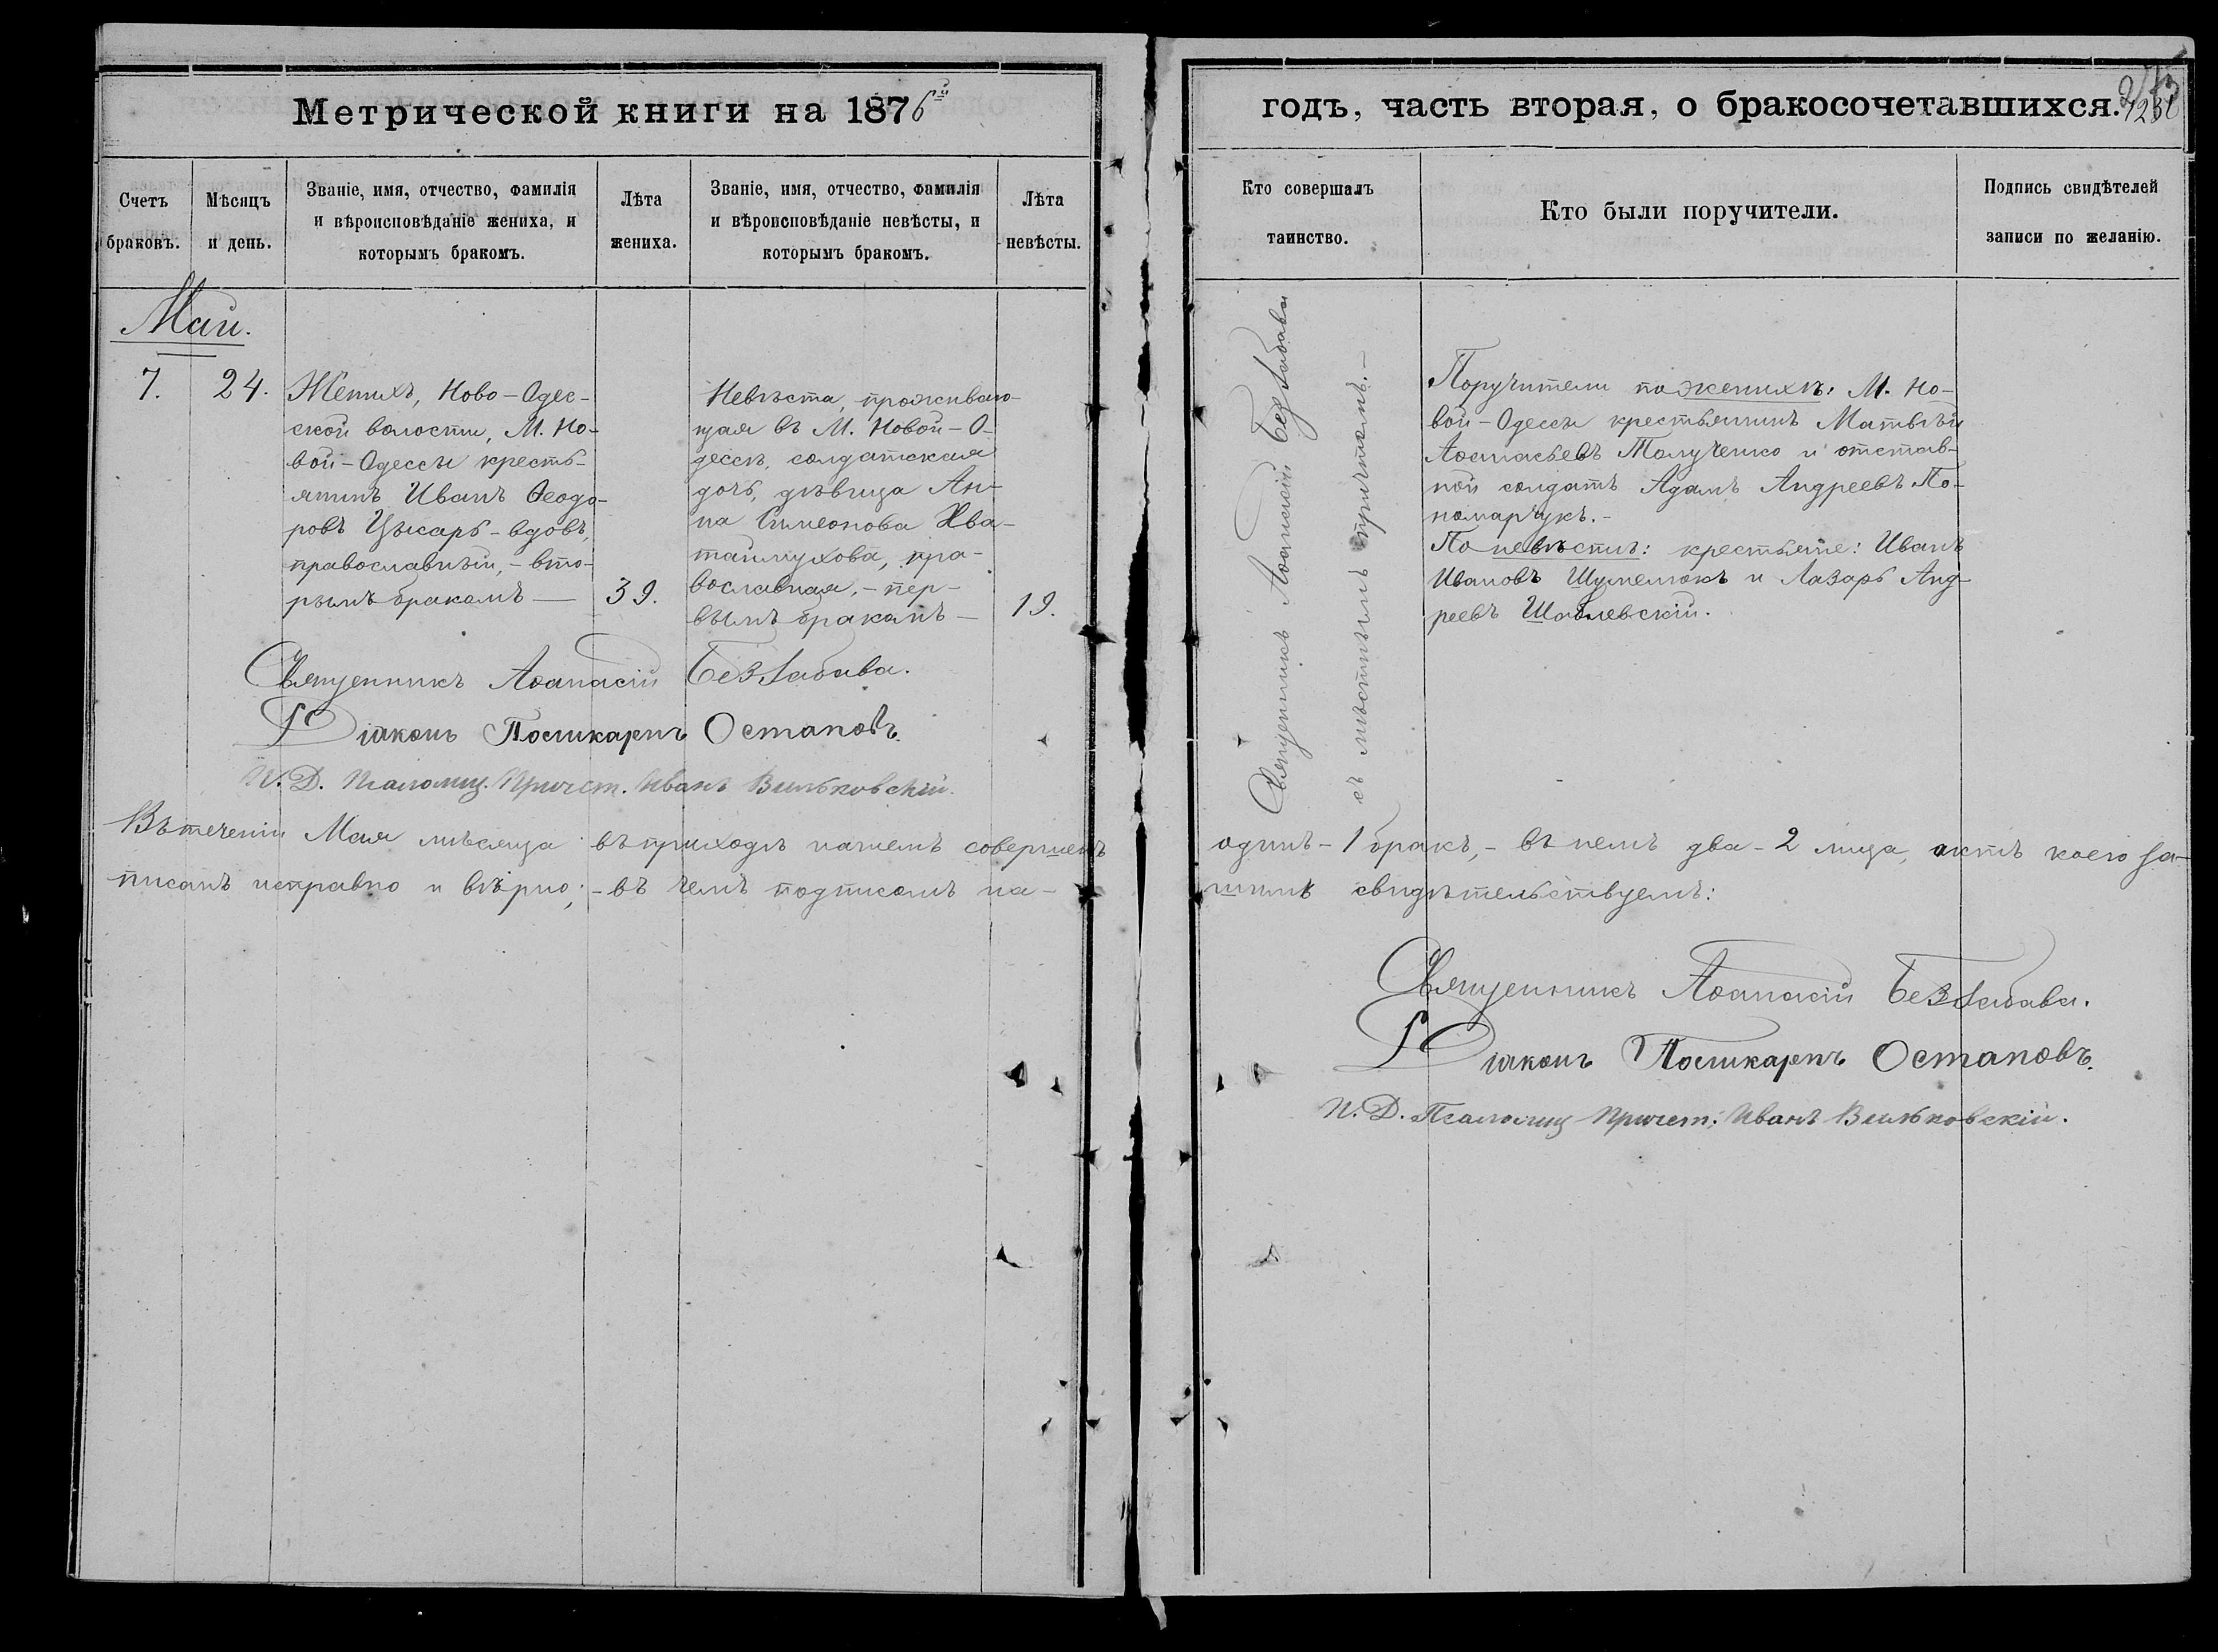 Метрической книги на 1876й
годъ, часть вторая, о бракосочетавшихся.
Счетъ браковъ.
Мѣсяцъ и день.
Званіе, имя, отчество, фамилія
и вѣроисповѣданіе жениха, и
которымъ бракомъ.
Лѣта
жениха.
Званіе, имя, отчество, фамилія
и вѣроисповѣданіе невѣсты, и
которымъ бракомъ.
Лѣта
невѣсты.
Кто совершалъ
таинство.
Кто были поручители.
Подпись свидѣтелей
записи по желанію.
Май.
7.
24.
Женихъ, Ново-Одес-
ской волости, М. Но-
вой-Одессы кресть-
янинъ Иванъ Ѳеодо-
ровъ Цыкаръ - вдовъ,
православный, - вто-
рымъ бракомъ —
39.
Невѣста, проживаю-
щая въ М. Новой-О-
дессѣ, солдатская
дочь, дѣвица Ан-
на Симеонова Хва-
таймухова, пра-
вославная, - пер-
вымъ бракомъ —
19.
Священникъ Аѳанасій Беззабава
съ мѣстнымъ причтомъ. —
Поручители по женихѣ: М. Но-
вой-Одессы крестьянинъ Матвѣй
Аѳанасьевъ Толученко и отстав-
ной солдатъ Адамъ Андреевъ По-
номарчукъ. -
По невѣстѣ: крестьяне: Иванъ
Ивановъ Шумелюкъ и Лазарь Анд-
реевъ Шаблевскій.
Священникъ Аѳанасій Беззабава.
Діаконъ Поликарпъ Остаповъ.
И. Д. Псаломщ. Причет. Иванъ Вильковскій.
Въ теченіи Мая мѣсяца въ приходѣ нашемъ совершенъ одинъ - 1 бракъ, - въ немъ два - 2 лица, актъ коего за-
писанъ исправно и вѣрно; - въ чемъ подписомъ на- шимъ свидѣтельствуемъ:
Священникъ Аѳанасій Беззабава.
Діаконъ Поликарпъ Остаповъ.
И. Д. Псаломщ Причет; Иванъ Вильковскій.